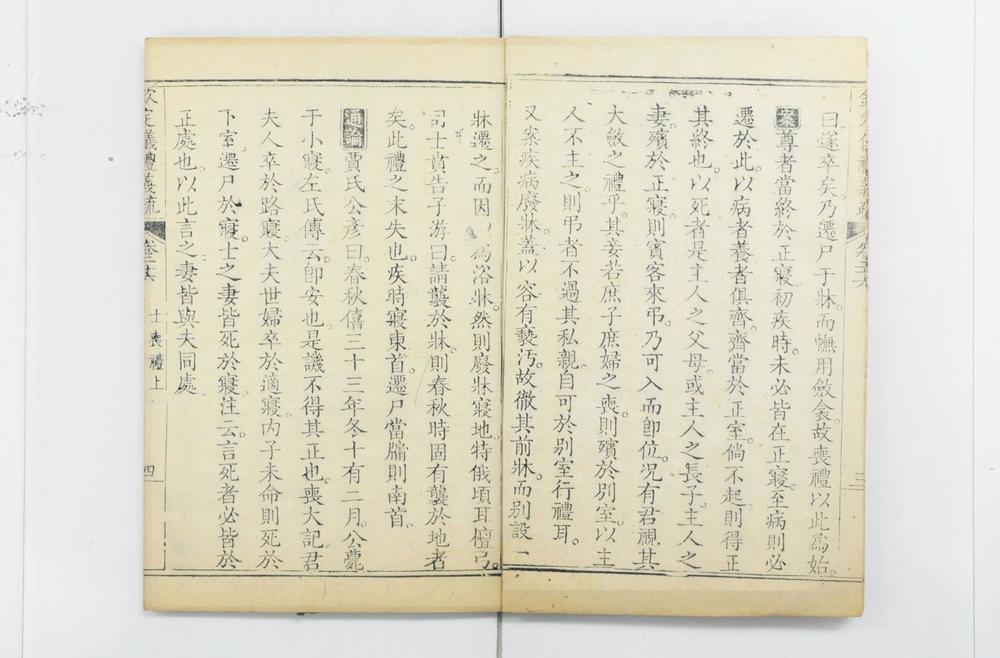 曰遂卒矣乃遷尸于牀而幠用斂衾故喪禮以此爲始
案尊者當終於正寢初疾時未必皆在正寢至病則必
遷於此以病者養者俱齊齊當於正室倘不起則得正
其終也以死者是主人之父母或主人之長子主人之
妻殯於正寢則賓客來弔乃可入而卽位况有君視其
大斂之禮乎其妾若庶子庶婦之喪則殯於別室以主
人不主之則弔者不過其私親自可於别室行禮耳
又案疾病廢牀蓋以容有褻汚故徹其前牀而别設一
牀遷之而因以爲浴牀然則廢牀寢地特俄頃耳檀弓
司士賁告子游曰請襲於牀則春秋時固有襲於地者
矣此禮之末失也疾時寢東首遷尸當牖則南首
通論賈氏公彥曰春秋僖三十三年冬十有二月公薨
于小寢左氏傳云卽安也是譏不得其正也喪大記君
夫人卒於路寢大夫世婦卒於適寢内子未命則死於
下室遷尸於寢士之妻皆死於寢注云言死者必皆於
正處也以此言之妻皆與夫同處
欽定儀禮義疏 卷二十六 士喪禮上 四